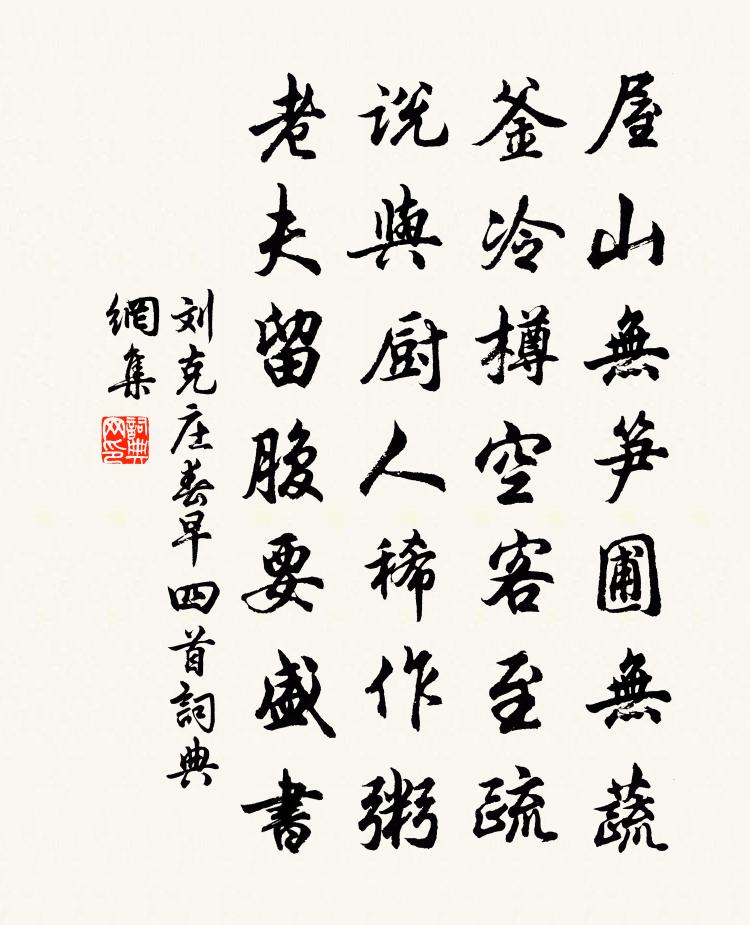 屋山無笋圃無蔬
釜冷樽空客至疏
説與厨人稀作粥
老夫留腹要盛書
刘克庄春早四首詞典
網集
詞典网印